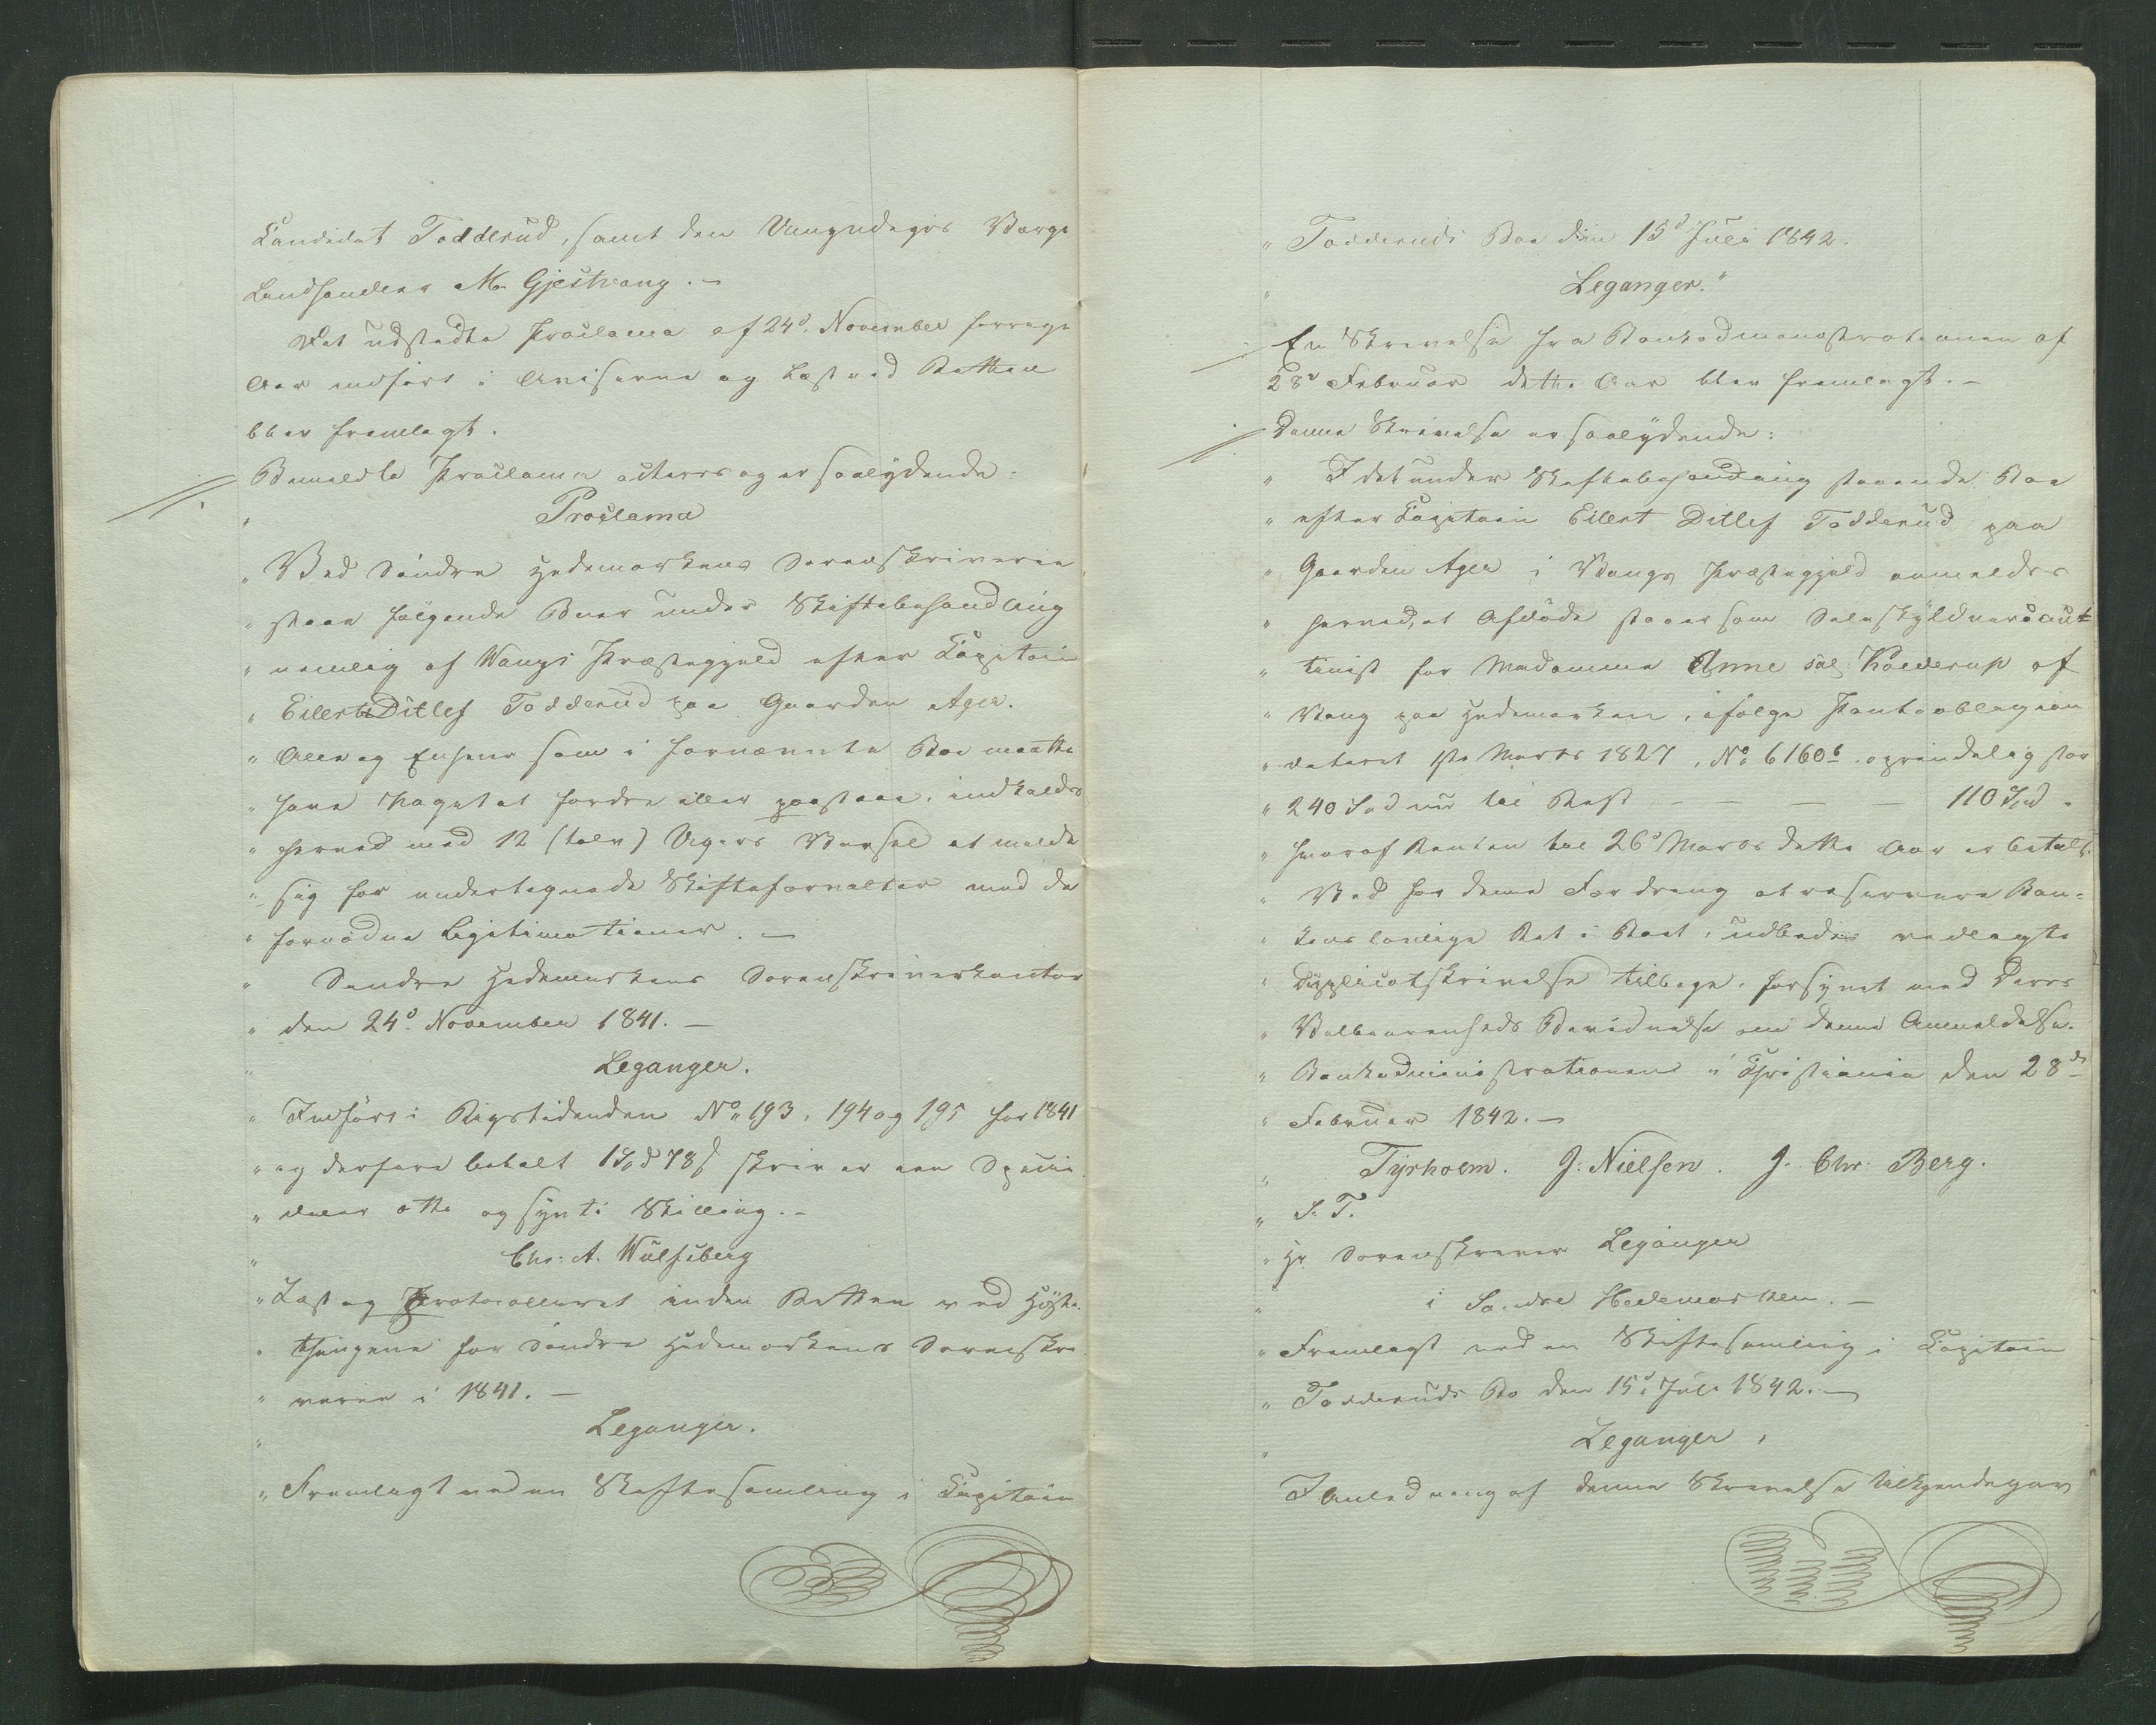 Candidat Todderud, samt den Umyndiges Værge
Landhandler M. Gjestvang. —
Det udstedte Proclama af 24d. November forrige
Aar indført i Aviserne og læst ved Retten
blev fremlagt.
Bemeldte Proclama acteres og er saalydende:
" Proclama
" Ved Søndre Hedemarkens Sorenskriverie
" staae følgende Boer under Skiftebehandling
" nemlig af Vangs Præstegjeld efter Capitain
" Eilert Ditlef Todderud paa Gaarden Ager.
" Alle og Enhver som i fornævnte Boe maatte
" have Noget at fordre eller paastaae, indkaldes
" herved med 12 (tolv) Ugers Varsel at melde
" sig for undertegnede Skifteforvalter med de
" fornødne Legitimationer. —
" Søndre Hedemarkens Sorenskriverkontor
" den 24d. November 1841. —
" Leganger.
" Indført i Rigstidenden No 193, 194 og 195 for 1841
" og derfore betalt 1 Spd 78 s skriver een Specie-
" daler otte og synti Skilling. —
" Chr: A. Wulfsberg
" Læst og Protocolleret inden Retten ved Høste-
" thingene for Søndre Hedemarkens Sorenskri-
" verie i 1841. —
" Leganger.
" Fremlagt ved en Skiftesamling i Capitain
" Todderuds Boe den 15d Juli 1842.
" Leganger."
En Skrivelse fra Bankadministrationen af
28d Februar dette Aar blev fremlagt. —
Denne Skrivelse er saalydende:
" I det under Skiftebehandling staaende Boe
" efter Capitain Eilert Ditlef Todderud paa
" Gaarden Ager i Vangs Præstegjeld anmeldes
" herved, at Afdøde staaer som Selvskyldnercaut
" tinist for Madamme Anne sal: Kolderup af
" Vang paa Hedemarken, ifølge Panteobligation
" dateret 1ste Marts 1827, No 6160b oprindelig stor
" 240 Spd nu til Rest — — — — 110 Spd.
" hvoraf Renten til 26d Marts dette Aar er betalt.
" Ved for denne Fordring at reservere Ban-
" kens lovlige Ret i Boet, udbedes vedlagte
" Duplicatskrivelse tilbage, forsynet med Deres
" Velbaarenheds Bevidnelse om denne Anmeldelse.
" Bankadministrationen i Christiania den 28de
" Februar 1842. —
" Tyrholm. J: Nielsen. J. Chr: Berg.
" S. T.
" Hr. Sorenskriver Leganger
" i Søndre Hedemarken. —
" Fremlagt ved en Skiftesamling i Capitain
" Todderuds Bo den 15d Juli 1842. —
" Leganger.
I Anledning af denne Skrivelse tilkjendegav